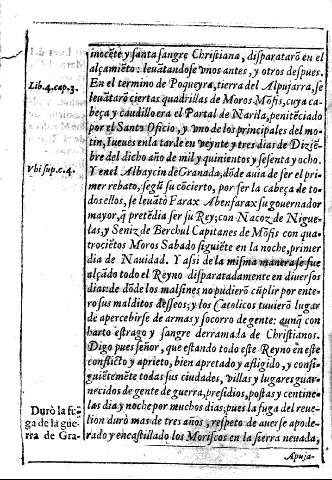 inocẽte y santa sangre Christiana, disparararõ en el
alçamiẽto: leuãtandose vnos antes, y otros despues.
Lib.4.cap.3.
En el termino de Poqueyra, tierra del Alpujarra, se
leuãtarõ ciertas quadrillas de Moros Mõfis, cuya ca-
beça y caudillo era el Partal de Narila, penitẽciado
por el Santo Oficio, y vno de los principales del mo-
tin, Iueues en la tarde en veynte y tres dias de Diziẽ-
bre del dicho año de mil y quinientos y sesenta y ocho.
Vbi sup.c.4.
Y en el Albayzin de Granada, dõde auia de ser el pri-
mer rebato, segũ su cõcierto, por ser la cabeça de to-
dos ellos, se leuãtò Farax Abenfarax su gouernador
mayor, q̃ pretẽdia ser su Rey; con Nacoz de Nigue-
las, y Seniz de Berchul Capitanes de Mõfis con qua-
trociẽtos Moros Sabado siguiẽte en la noche, primer
dia de Nauidad. Y assi de la misma manera se fue
alçãdo todo el Reyno disparatadamente en diuersos
dias: de dõde los malsines no pudierõ cũplir por ente-
ro sus malditos desseos; y los Catolicos tuuierõ lugar
de apercebirse de armas y socorro de gente: aunq̃ con
harto estrago y sangre derramada de Christianos.
Digo pues señor, que estando todo este Reyno en este
conflicto y aprieto, bien apretado y afligido, y consi-
guiẽtemẽte todas sus ciudades, villas y lugares guar-
necidos de gente de guerra, presidios, postas y centine-
las dia y noche por muchos dias; pues la fuga del reue-
Durò la fu-
ga de la gue-
rra de Gra-
lion durò mas de tres años, respeto de auerse apode-
rado y encastillado los Moriscos en la sierra neuada,
Apuja-